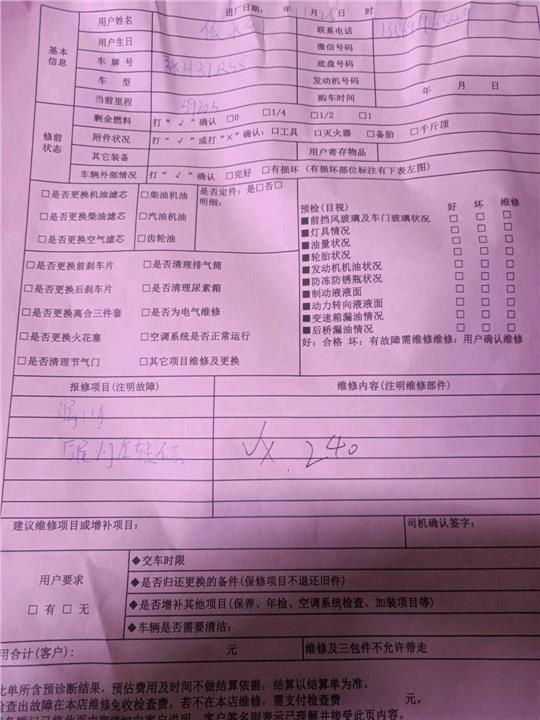 进厂日期: 年 11月 日 时
基本信息
用户姓名
联系电话
用户生日
微信号码
车牌号
底盘号码
车型
发动机号码
当前里程 59203
购车时间 年 月 日
修前状态
剩余燃料 打“√”确认 □0 □1/4 □1/2 □1
附件状况 打“√”或打“×”确认: □工具 □灭火器 □备胎 □千斤顶
其它装备
用户寄存物品
车辆外部情况 打“√”确认 □完好 □有损坏(有损坏部位标注有下表左图)
□是否更换机油滤芯 □柴油机油
□是否更换柴油滤芯 □汽油机油
□是否更换空气滤芯 □齿轮油
是否定件: 是□否□
明细:
□是否更换前刹车片 □是否清理排气筒
□是否更换后刹车片 □是否清理尿素箱
□是否更换离合三件套 □是否为电气维修
□是否更换火花塞 □空调系统是否正常运行
□是否清理节气门 □其它项目维修及更换
预检(目视) 好 坏 维修
■前挡风玻璃及车门玻璃状况 □ □ □
■灯具情况 □ □ □
■油量状况 □ □ □
■轮胎状况 □ □ □
■发动机机油状况 □ □ □
■防冻防锈瓶状况 □ □ □
■制动液液面 □ □ □
■动力转向液液面 □ □ □
■变速箱漏油情况 □ □ □
■后桥漏油情况 □ □ □
好: 合格 坏: 有故障需维修维修: 用户确认维修
报修项目(注明故障)
维修内容(注明维修部件)
240
建议维修项目或增补项目:
司机确认签字:
用户要求
□有 □无
◆交车时限
◆是否归还更换的备件(保修项目不退还旧件)
◆是否增补其他项目(保养、年检、空调系统检查、加装项目等)
◆车辆是否需要清洁:
用合计(客户): 元
维修及三包件不允许带走
此单所含预诊断结果,预估费用及时间不做结算依据,结算以结算单为准。
检查出故障在本店维修免收检查费,若不在本店维修,需支付检查费 元。